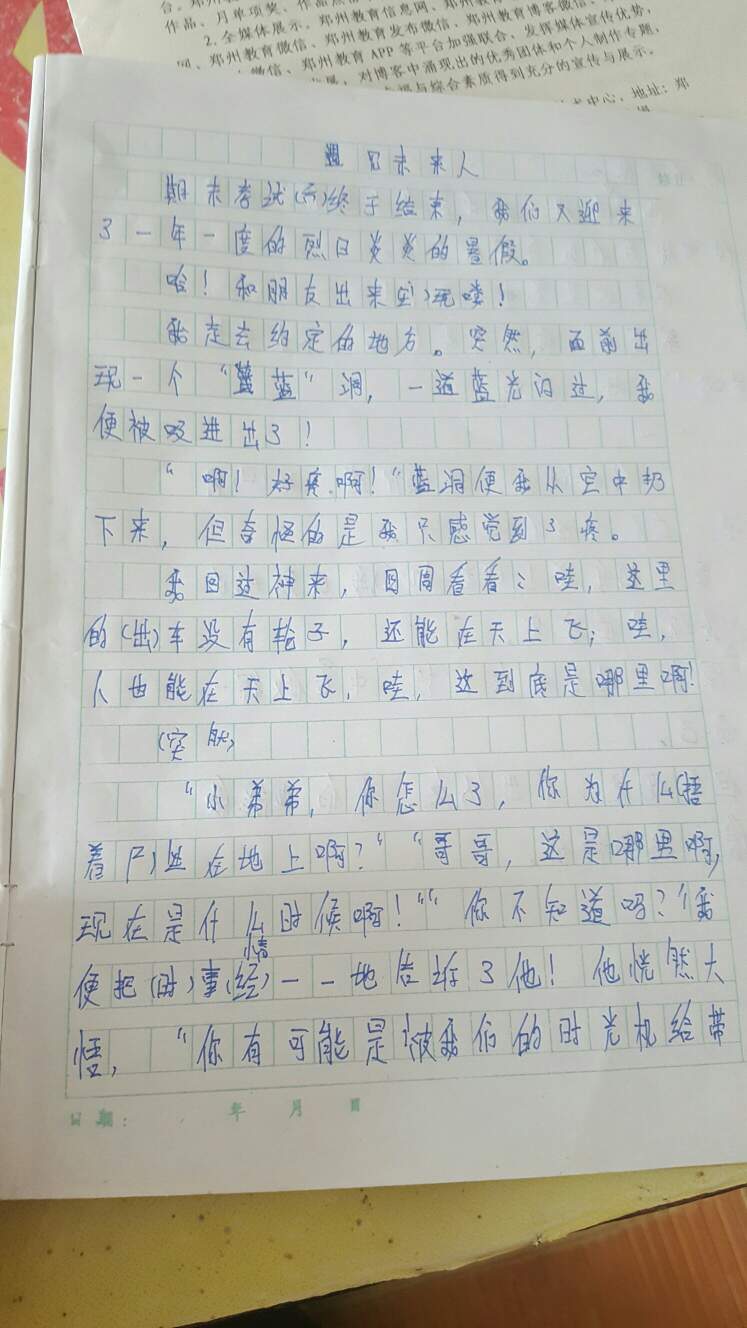 作品、月单项奖、作品点
2. 全媒体展示。郑州教育信息网、郑州教育
郑州教育微信、郑州教育发布微信、郑州教育博客微信、
网、郑州教育 APP 等平台加强联合、发挥媒体宣传优势,
对博客中涌现出的优秀团体和个人制作专题,
与综合素质得到充分的宣传与展示。
中心,地址:郑
囚未来人
期末考试(而)终于结束,我们又迎来
了一年一度的烈日炎炎的暑假。
哈!和朋友出来(至)玩喽!
我走去约定的地方。突然,面前出
现一个“蓝”洞,一道蓝光闪过,我
便被吸进出了!
“啊!好疼啊!“蓝洞便我从空中扔
下来,但奇怪的是我只感觉到了疼。
我回过神来,四周看看:哇,这里
的(出)车没有轮子,还能在天上飞;哇,
人也能在天上飞,哇,这到底是哪里啊!
(突然)
“小弟弟,你怎么了,你为什么(捂
着尸)坐在地上啊?“ “哥哥,这是哪里啊,
现在是什么时候啊!““你不知道吗?“我
便把(时)事(经)情一一地告诉了他!他恍然大
悟,“你有可能是被我们的时光机给带
日期: 年 月 日